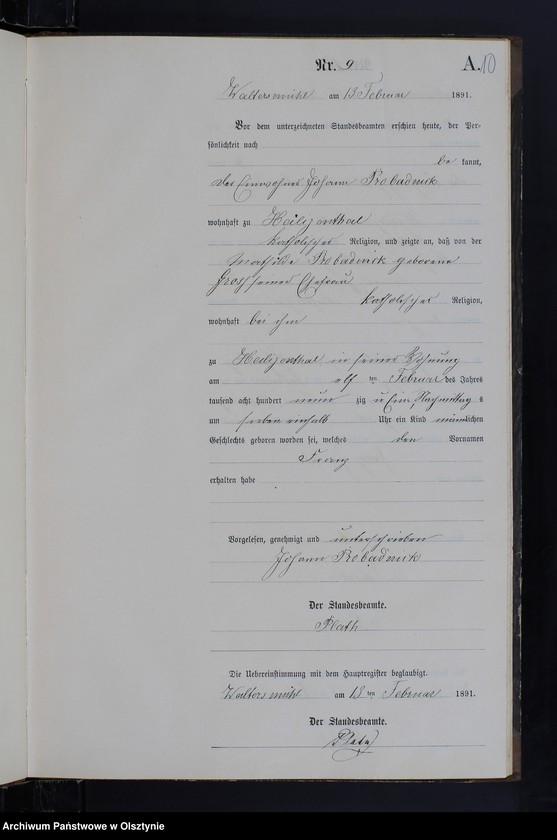 Nr. 9
A. 10
Waltersmühl am 13 Februar 1891.
Vor dem unterzeichneten Standesbeamten erschien heute, der Per-
sönlichkeit nach
be kannt,
der Einwohner Johann Robadnick
wohnhaft zu Heiligenthal
katholischer Religion, und zeigte an, daß von der
Mathilde Robadnick geborene
Gross seiner Ehefrau
katholischer Religion,
wohnhaft bei ihm
zu Heiligenthal in seiner Wohnung
am elf ten Februar des Jahres
tausend acht hundert neun zig u Eins, Nachmittag s
um sieben einhalb Uhr ein Kind männlichen
Geschlechts geboren worden sei, welches den Vornamen
Franz
erhalten habe
Vorgelesen, genehmigt und unterschrieben
Johann Robadnick
Der Standesbeamte.
Plath
Die Uebereinstimmung mit dem Hauptregister beglaubigt.
Waltersmühl am 13 ten Februar 1891.
Der Standesbeamte.
Plath
Archiwum Państwowe w Olsztynie